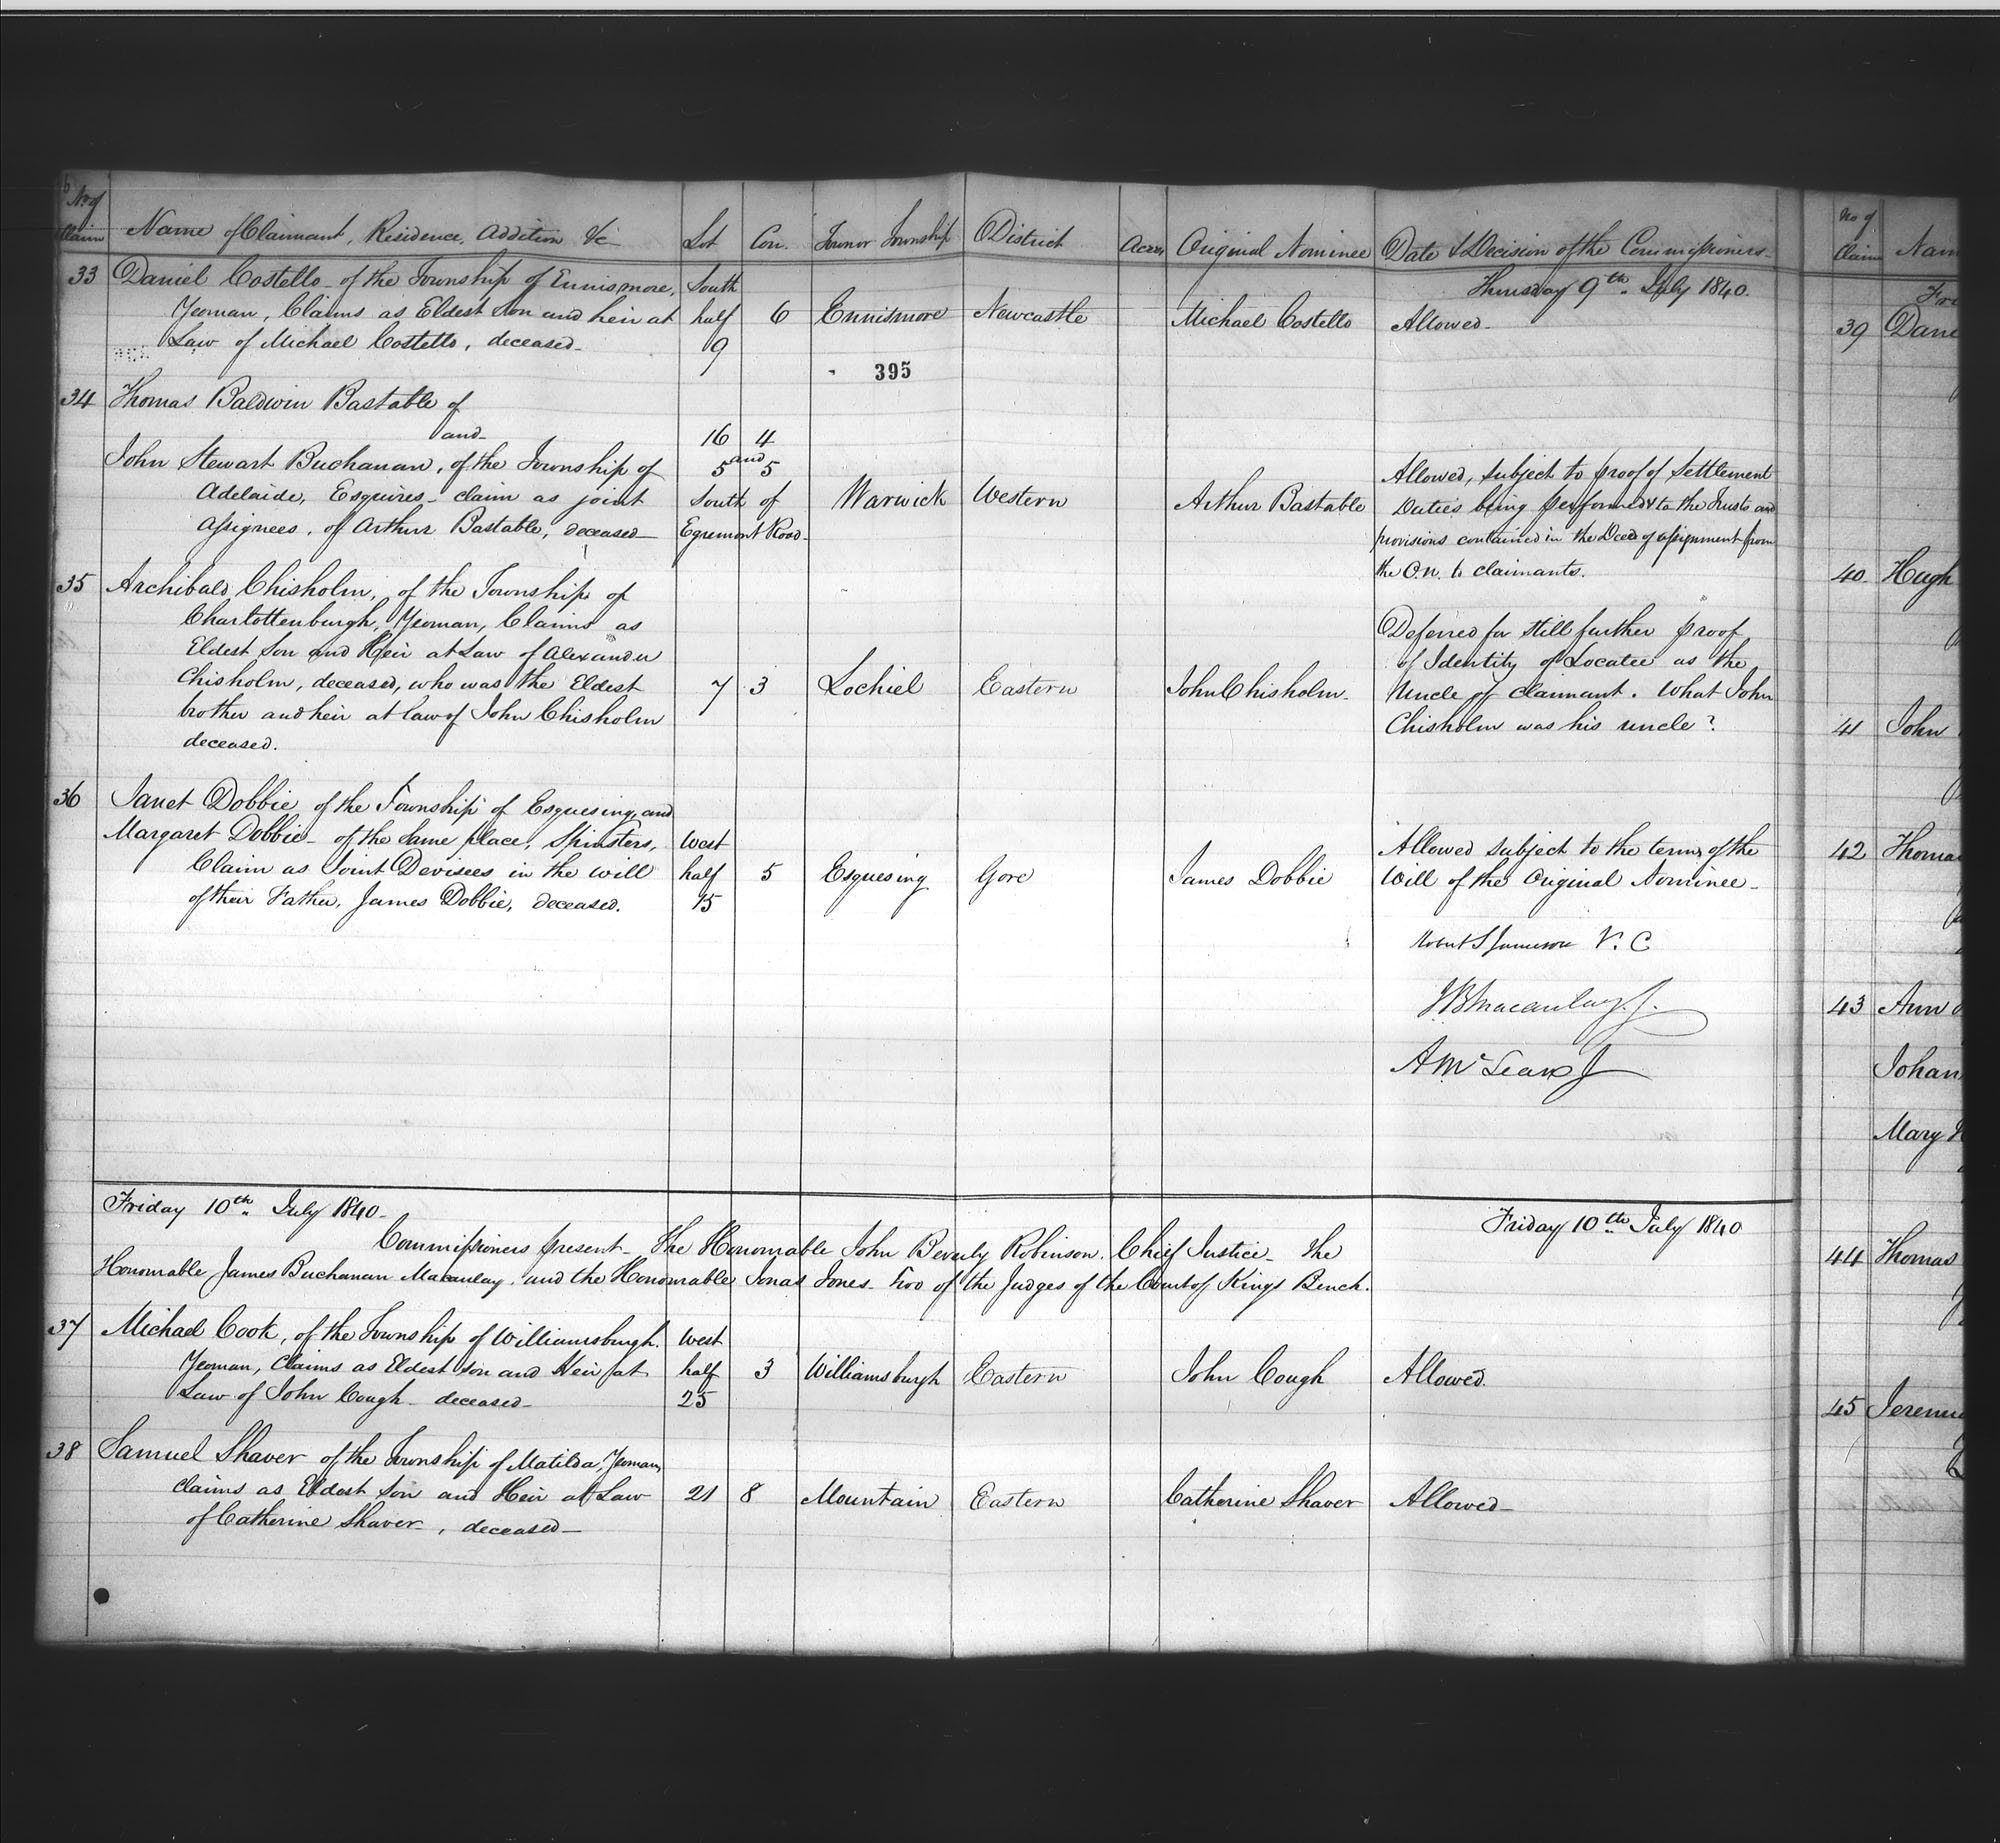 6
No of Claim Name of Claimant, Residence, Addition &c Lot Con. Town or Township District Acres Original Nominee Date & Decision of the Commissioners
Thursday 9th July 1840.
33 Daniel Costello of the Township of Ennismore, South
Yeoman, Claims as Eldest Son and heir at half 6 Ennismore Newcastle Michael Costello Allowed
Law of Michael Costello, deceased 9
395
34 Thomas Baldwin Bastable of
and 16 4
and
John Stewart Buchanan, of the Township of 5 5 Allowed, subject to proof of Settlement
Adelaide, Esquires claim as joint South of Warwick Western Arthur Bastable Duties being performed & to the Trusts and
Assignees, of Arthur Bastable, deceased Egremont Road provisions contained in the Deed of assignment from
the O.N. to claimants.
35 Archibald Chisholm, of the Township of
Charlottenburgh, Yeoman, Claims as Deferred for still further proof
Eldest Son and Heir at Law of Alexander of Identity of Locatee as the
Chisholm, deceased, who was the Eldest 7 3 Lochiel Eastern John Chisholm Uncle of claimant. What John
brother and heir at law of John Chisholm Chisholm was his uncle?
deceased.
36 Janet Dobbie of the Township of Esquesing, and
Margaret Dobbie of the same place, Spinsters, West Allowed subject to the terms of the
Claim as Joint Devisees in the will half 5 Esquesing Gore James Dobbie Will of the Original Nominee
of their Father, James Dobbie, deceased. 15
Robert S Jameson V.C
J B Macaulay. J.
A McLean J
Friday 10th July 1840 Friday 10th July 1840
Commissioners present The Honorable John Beverly Robinson. Chief Justice The
Honorable James Buchanan Macaulay, and the Honorable Jonas Jones Two of the Judges of the Court of Kings Bench.
37 Michael Cook, of the Township of Williamsburgh. West
Yeoman, Claims as Eldest son and Heir at half 3 Williamsburgh Eastern John Cough Allowed.
Law of John Cough deceased 25
38 Samuel Shaver of the Township of Matilda, Yeoman,
claims as Eldest Son and Heir at Law 21 8 Mountain Eastern Catherine Shaver Allowed
of Catherine Shaver, deceased
No of
Claim Nam
Fri
39 Dani
40 Hugh
41 John
42 Thomas
43 Ann
Johan
Mary
44 Thomas
45 Jeremi